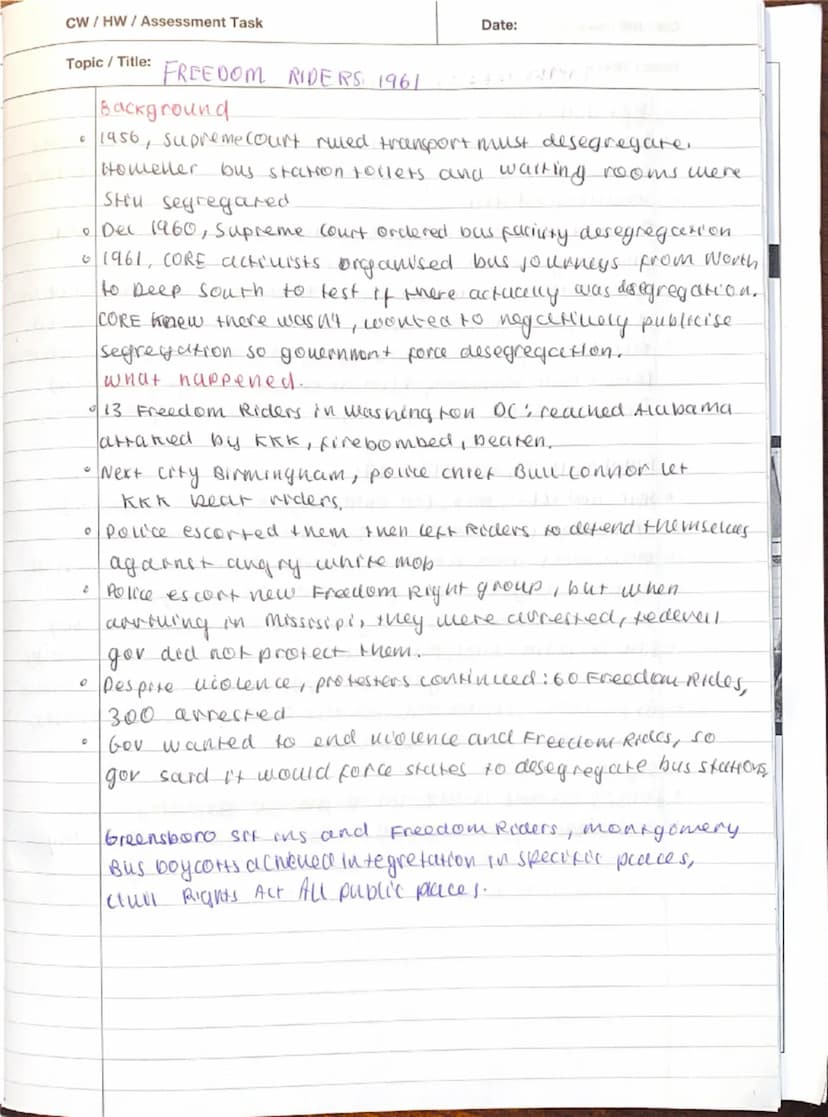 CW / HW / Assessment Task
Date:
Topic / Title: FREEDOM RIDERS 1961
Background
1956, Supreme court ruled transport must desegregate.
However bus station toilets and waiting rooms were
still segregated
Dec 1960, Supreme Court ordered bus facility desegregation
1961, CORE activists organised bus journeys from North
to Deep South to test if there actually was desegregation.
CORE knew there wasn't, wanted to negatively publicise
segregation so government force desegregation.
What happened.
13 Freedom Riders in Washington DC: reached Alabama
attacked by KKK, firebombed, beaten.
Next city Birmingham, police chief Bull Connor let
KKK beat riders.
Police escorted them then left Riders to defend themselves
against angry white mob
Police escort new Freedom Right group, but when
arriving in Missisipi, they were arrested, federall
gov did not protect them.
Despite violence, protesters continued: 60 Freedom Rides,
300 arrested
Gov wanted to end violence and Freedom Rides, so
gov said it would force states to desegregate bus stations
Greensboro sit ins and Freedom Riders, Montgomery
Bus boycotts achieved integretation in specific places,
Civil Rights Act All public places.